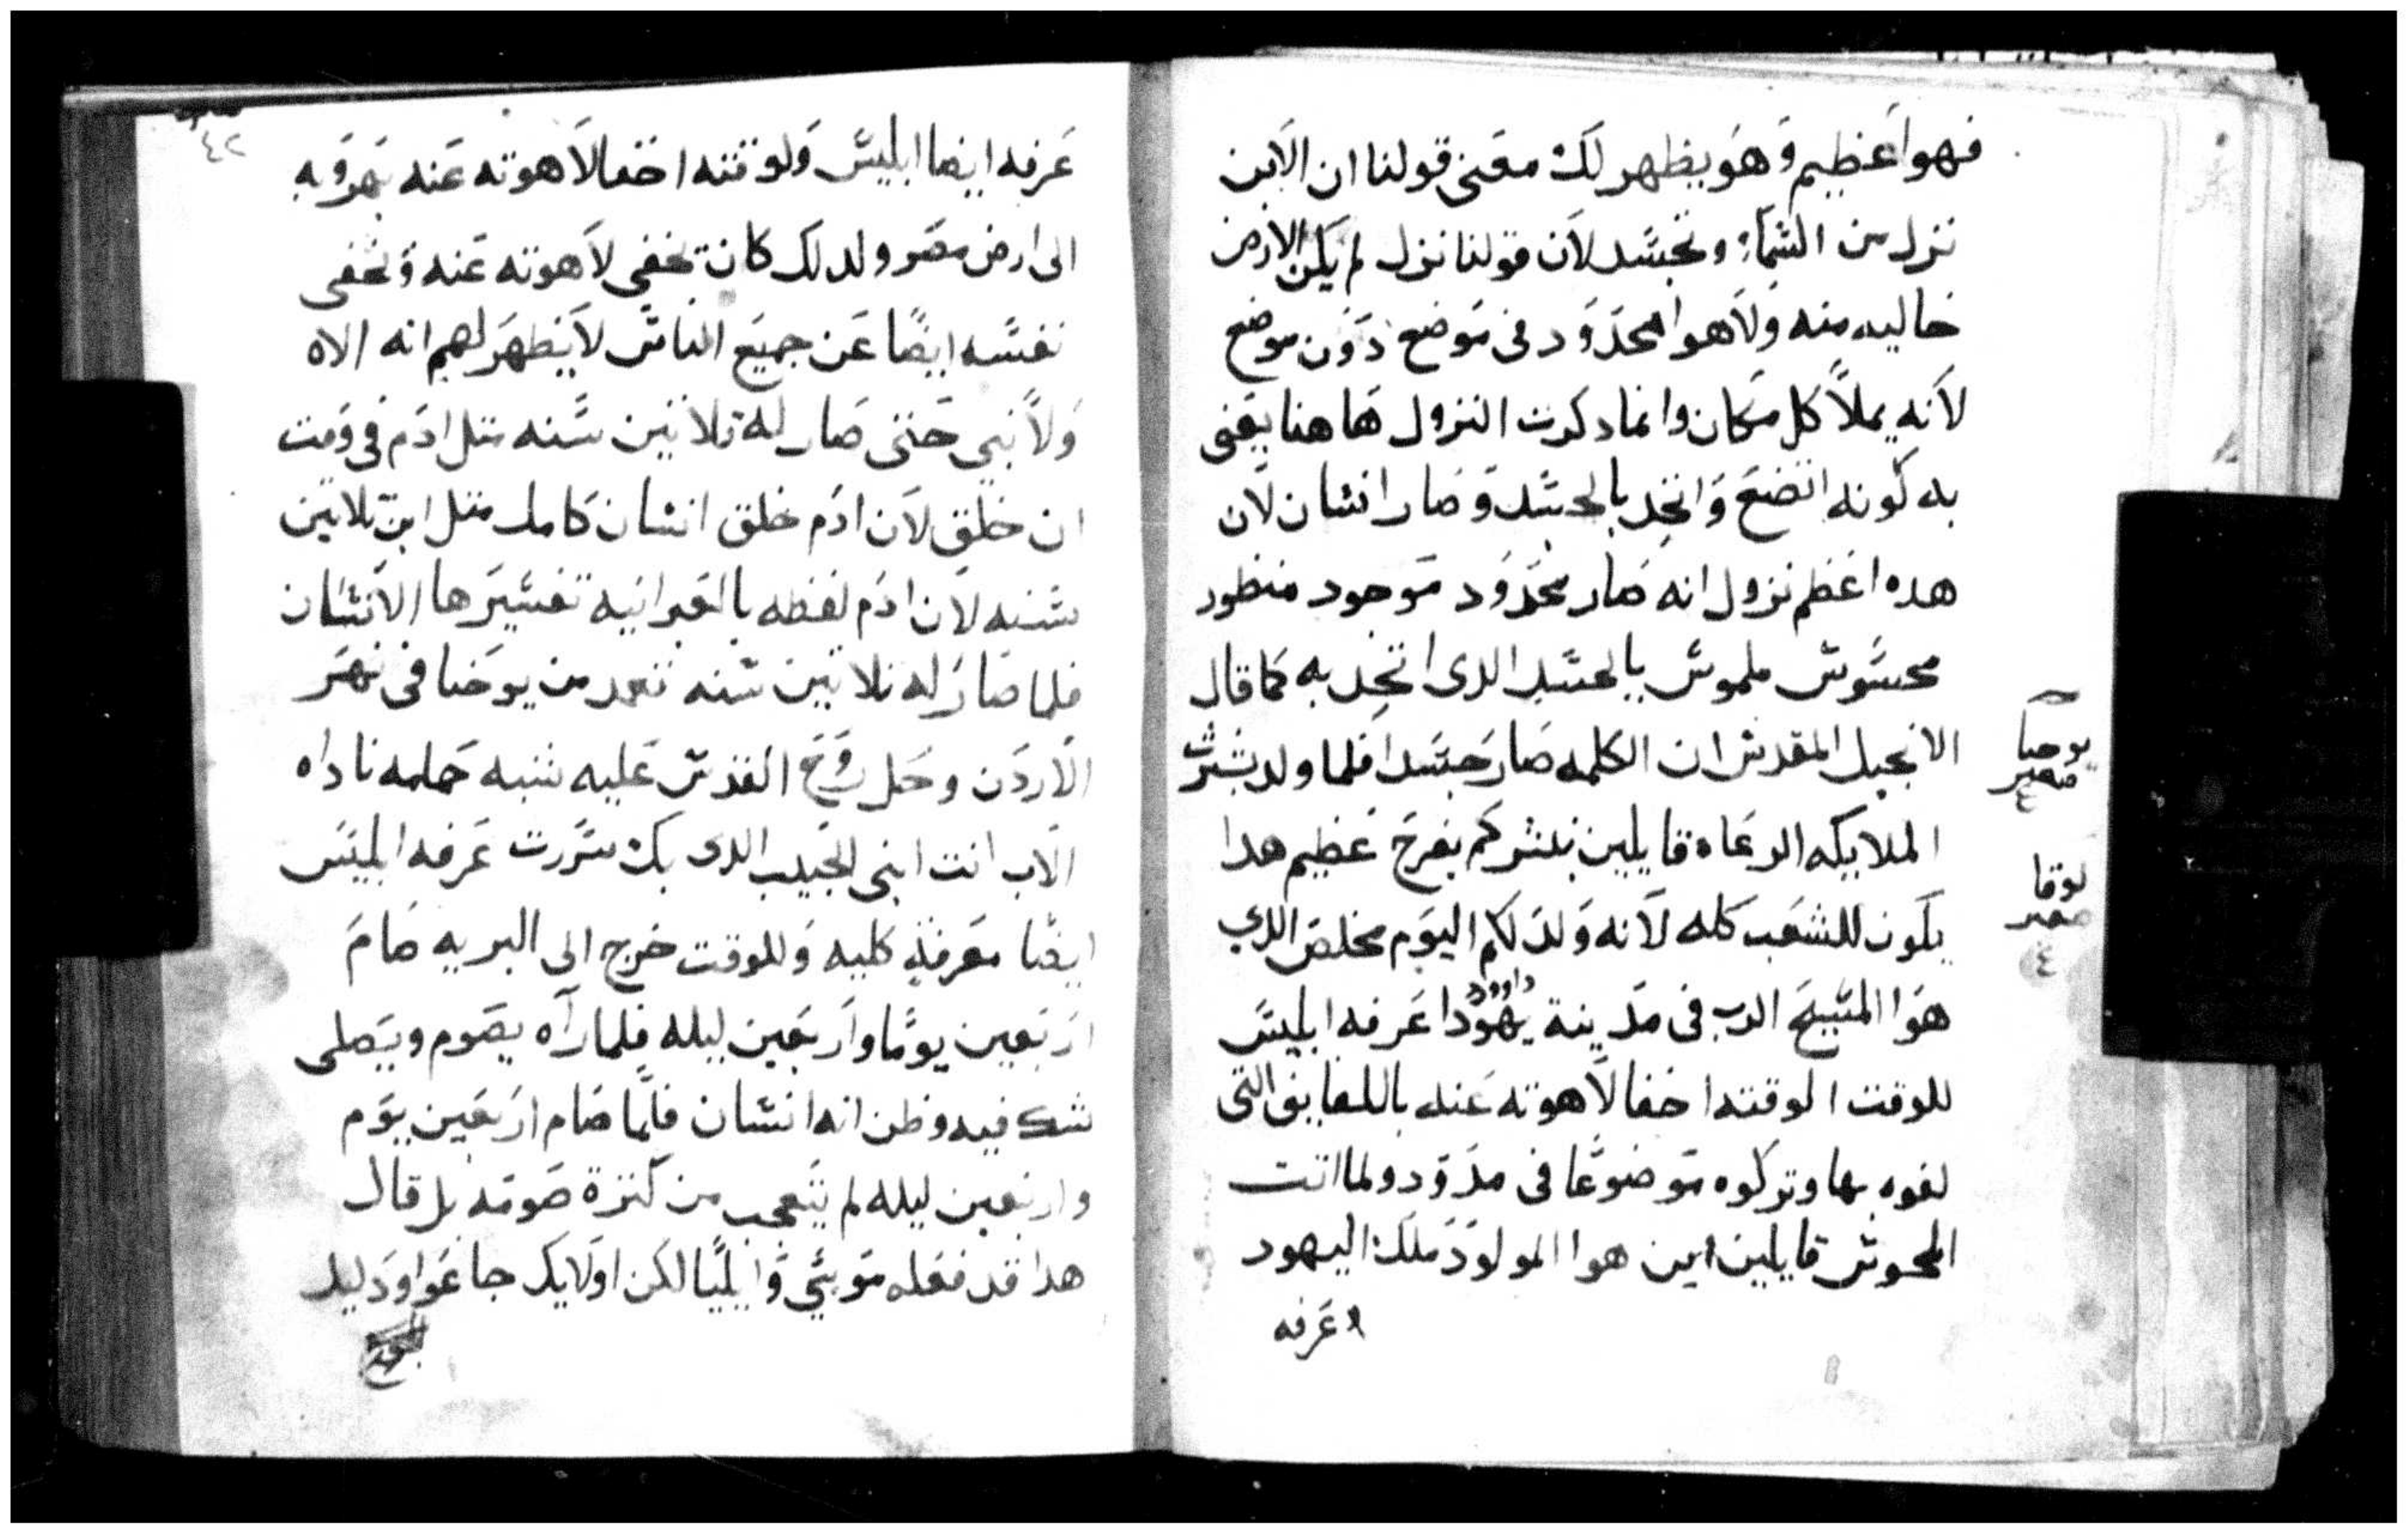 فهوا عظيم وهو يظهر لك معنى قولنا ان الابن
نزل من السماء وتجسد لان قولنا نزل لم يكن الارض
خاليه منه ولا هوا محدود فى موضع دون موضع
لانه يملا كل مكان وانما دكرت النزول هاهنا يعنى
به كونه اتضع واتحد بالجسد وصار انسان لان
هده اعظم نزول انه صار محدود موجود منظور
محسوس ملموس بالجسد الدى اتحد به كما قال
الانجيل المقدس ان الكلمه صار جسدا فلما ولد بشرت
يوحنا
٤
الملايكه الرعاه قايلين نبشركم بفرح عظيم هدا
لوقا
٤
يكون للشعب كله لانه ولد لكم اليوم مخلص الدي
هوا المسيح الرب فى مدينة يهودا داوود عرفه ابليس
للوقت الوقته اخفا لاهوته عنه باللفايف التى
لفوه بها وتركوه موضوعا فى مدود ولما اتت
المجوس قايلين اين هوا المولود ملك اليهود
وعرفه
٤٢
عرفه ايضا ابليس ولوقته اخفا لاهوته عنه بهروبه
الى ارض مصر ولدلك كان يخفى لاهوته عنه ويخفى
نفسه ايضا عن جميع الناس لا يظهر لهم انه الاه
ولا نبي حتى صار له تلاتين سنه متل ادم فى وقت
ان خلق لان ادم خلق انسان كامل متل ابن تلاتين
سنه لان ادم لفظه بالعبرانيه تفسيرها الانسان
فلما صار له تلاتين سنه تعمد من يوحنا فى نهر
الاردن وحل روح القدس عليه شبه حمامه ناداه
الاب انت ابنى الحبيب الدى بك سررت عرفه ابليس
ايضا معرفة كليه وللوقت خرج الى البريه صام
اربعين يوما واربعين ليله فلما رآه يصوم ويصلى
شك فيه وظن انه انسان فلما صام اربعين يوم
واربعين ليله لم يتعجب من كترة صومه بل قال
هدا قد فعله موسي وايليا لكن اولايك جاعوا ودليد